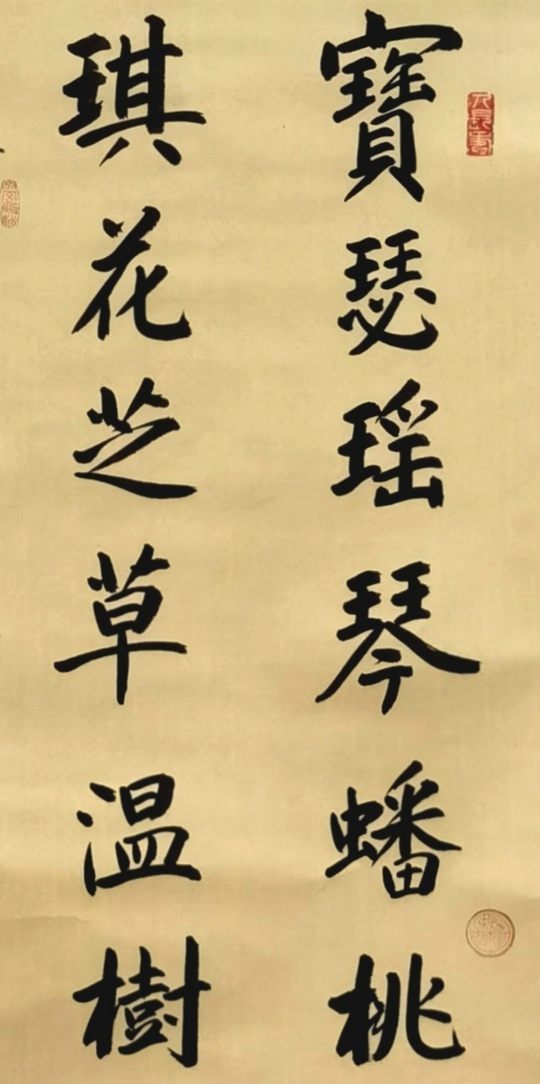 寶瑟瑶琴蟠桃
琪花芝草温樹